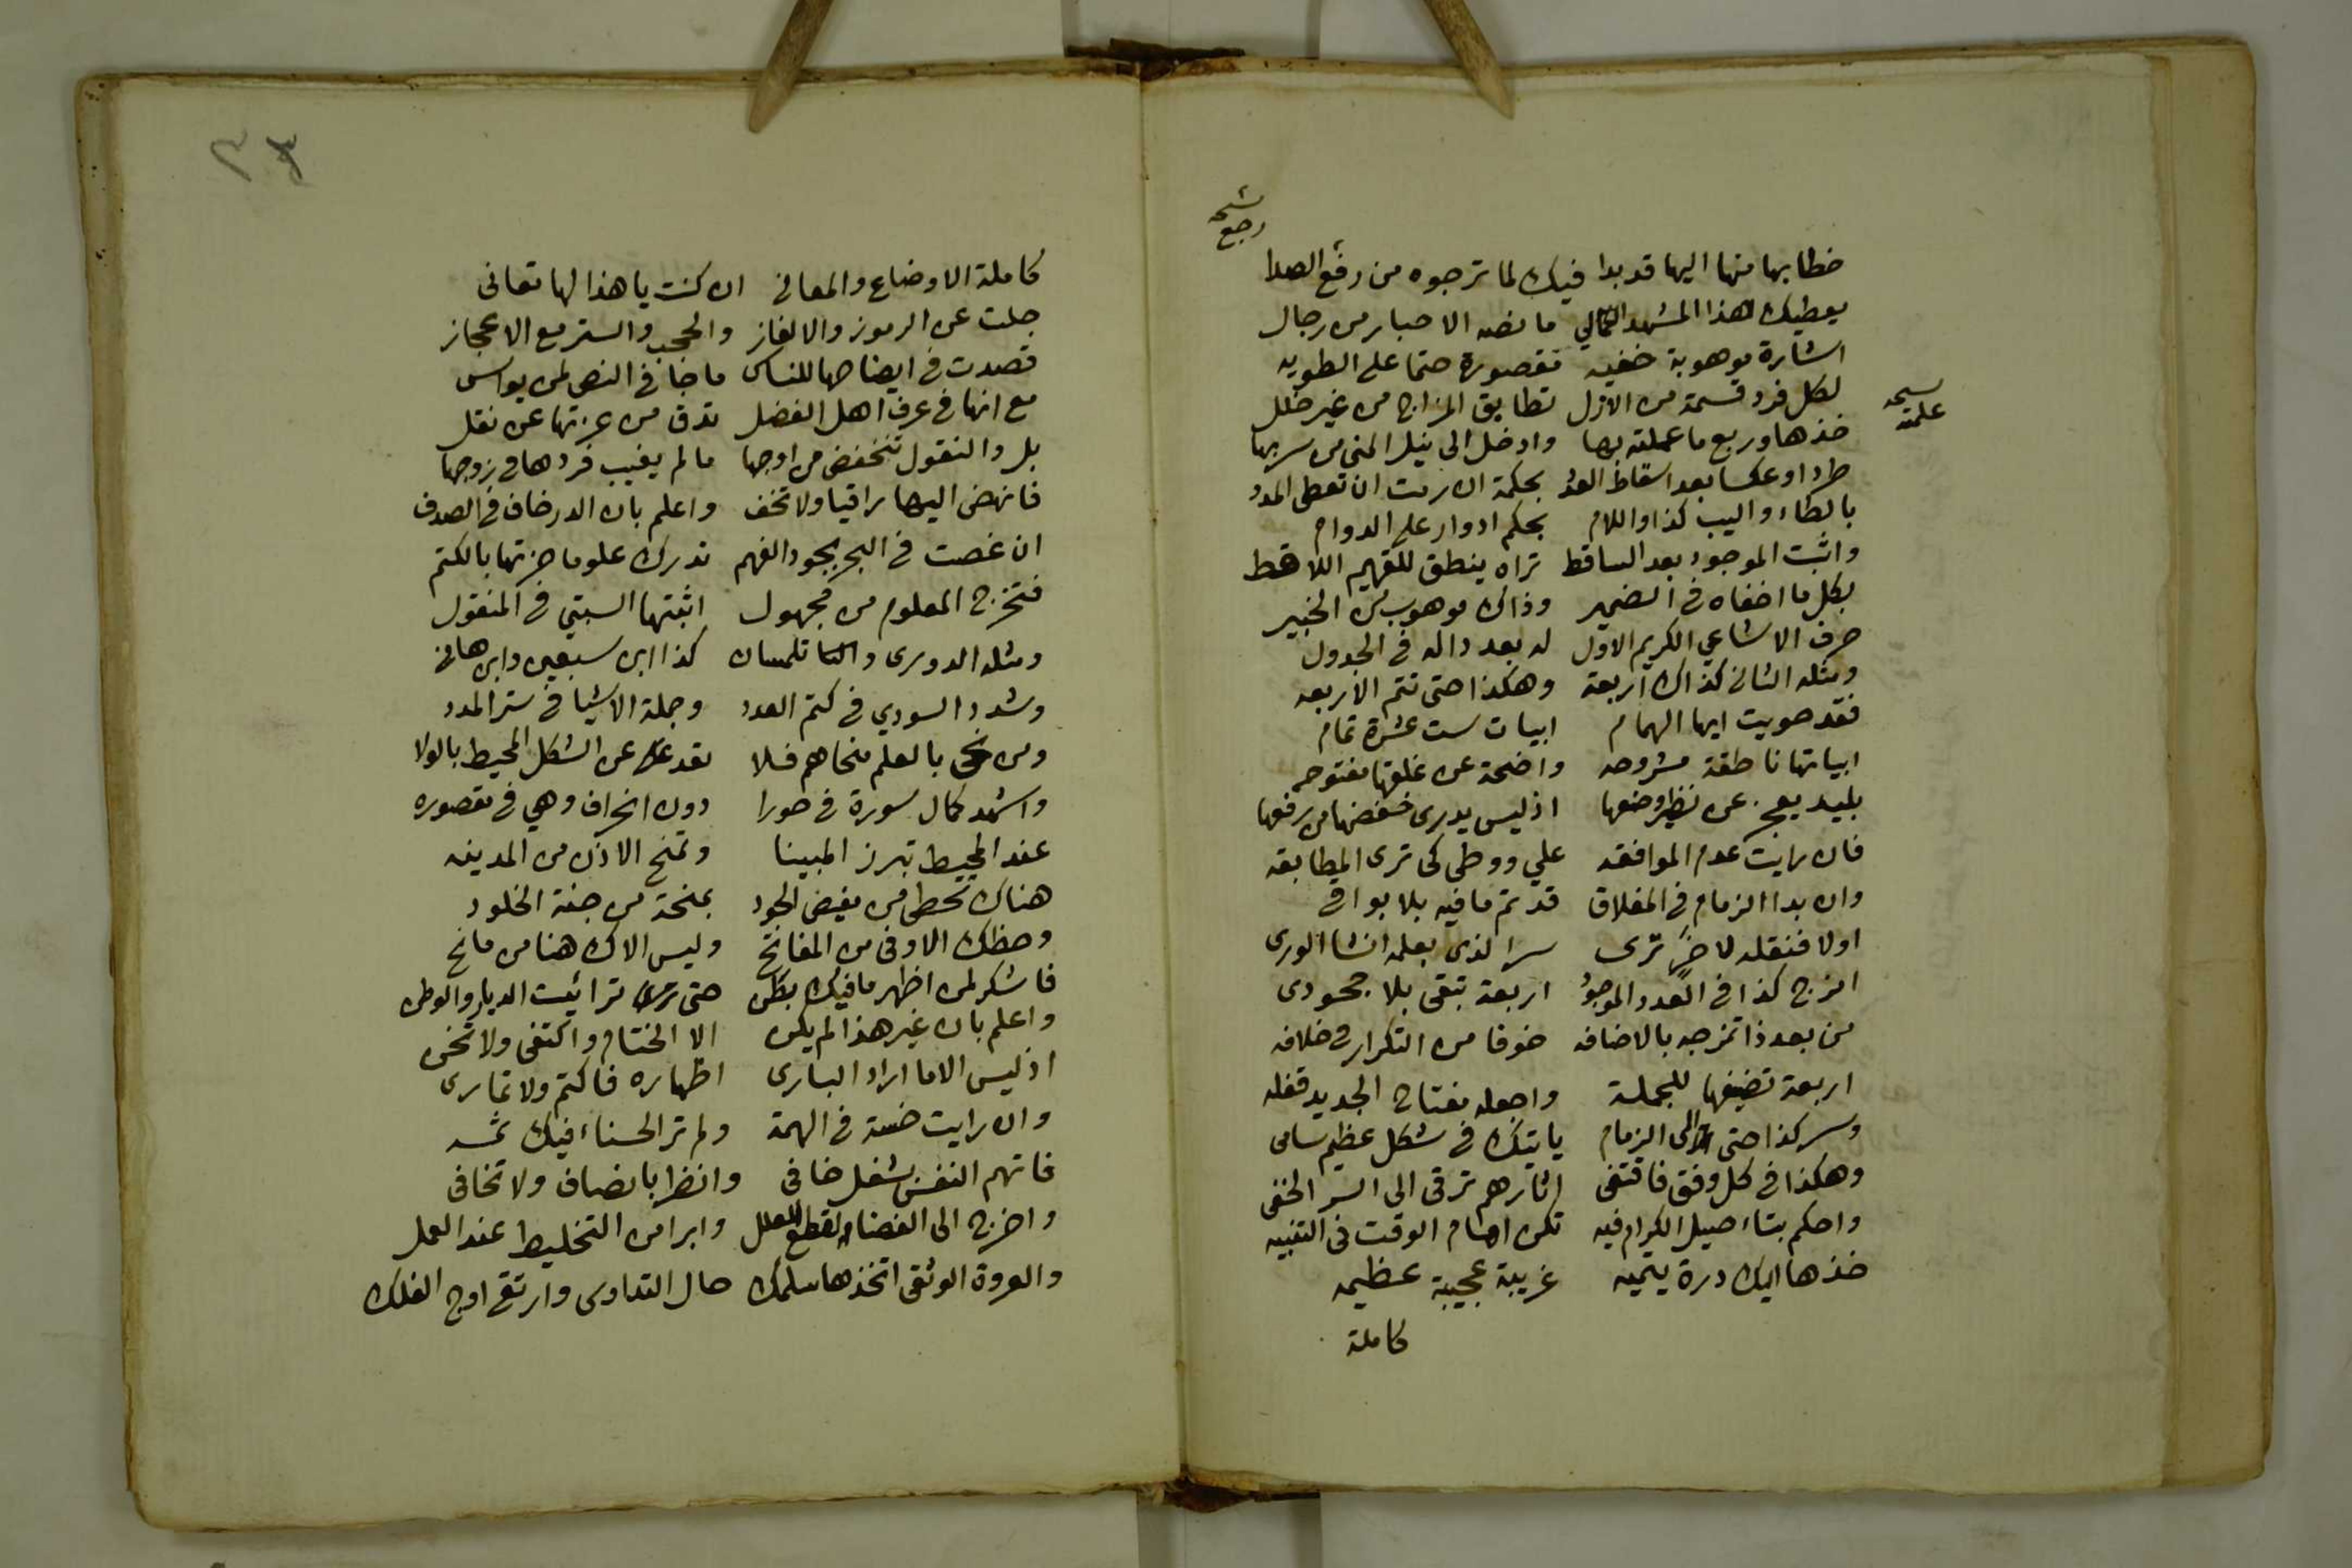 نسخه
رجع
خطابها منها اليها قد بدا فيك لما ترجوه من رفع الصدا
يعطيك هذا المشهد الكمالي ما نصه الاحبار من رجال
اشارة موهوبة خفيه مقصورة حتما على الطويه
لكل فرد قسمة من الازل تطابق المزاج من غير خلل
نسخه
علمته
خذها وربع ما عملته بها وادخل الى نيل المنى من سربها
طردا وعكسا بعد اسقاط العدد بحكمة ان رمت ان تعطى المدد
بالطاء واليب كذا واللام بحكم ادوار على الدوام
واثبت الموجود بعد الساقط تراه ينطق للفهيم اللاقط
بكل ما اخفاه في الضمير وذاك موهوب من الخبير
حرف الاشاعي الكريم الاول له بعد داله في الجدول
ومثله الثاني كذاك اربعة وهكذا حتى تتم الاربعه
فقد حويت ايها الهمام ابيات ست عشرة تمام
ابياتها ناطقة مشروحه واضحة عن غلقها مفتوحه
بليد يعجز عن نظير وضعها اذ ليس يدرى خفضها من رفعها
فان رايت عدم الموافقه على ووطى كى ترى المطابقه
وان بدا الزمام في المغلاق قد تم ما فيه بلا بواقي
اولا فنقله لاخر ترى سرا لذى بعلمه انشا الورى
امزج كذا في العدد الموجود اربعة تبقى بلا جحودى
من بعد ذا تمزجه بالاضافه خوفا من التكرار في خلافه
اربعة تضيفها للجملة واجعله مفتاح الجديد قفله
وسر كذا حتى الى الزمام ياتيك في شكل عظيم سامى
وهكذا في كل وفق فاقتفى اثارهم ترقى الى السر الخفى
واحكم بتاء صيل الكرام فيه تكن امام الوقت في التنبيه
خذها اليك درة يتيمه غريبة عجيبة عظيمه
كاملة
٣٣
كاملة الاوضاع والمعاني ان كنت يا هذا لها تعانى
جلت عن الرموز والالغاز والحجب والستر مع الاعجاز
قصدت في ايضاحها للناس ما جا في النص لمن يواس
مع انها في عرف اهل الفضل تدق من عزتها عن نقل
بل والنقول تنخفض من اوجها ما لم يغيب فردها في زوجها
فانهض اليها راقيا ولا تخف واعلم بان الدر خاف في الصدف
ان غصت في البحر بجود الفهم تدرك علوما حزتها بالكتم
فتخرج المعلوم من مجهول اثبتها السبتي في المنقول
ومثله الدورى والتا تلمسان كذا ابن سبعين وابن هاني
وشدد السودي في كتم العدد وجملة الاشيا في ستر المدد
ومن نحى بالعلم منحاهم فلا تعد عن الشكل المحيط بالولا
واشهد كمال سورة في صورا دون انحراف وهي في مقصوره
عند المحيط تبرز المبينا وتمنح الاذن من المدينه
هناك تحظى من مفيض الجود بمنحة من جنة الخلود
وحظك الاوفى من المفاتح وليس الاك هنا من مانح
فاشكر لمن اظهر ما فيك بطن حتى تراءيت الديار والوطن
واعلم بان غير هذا لم يكن الا الختام واكتفى ولا تخن
اذ ليس الا ما اراد البارى اظهاره فاكتم ولا تمارى
وان رايت خسة في الهمة ولم تر الحسناء فيك ثمه
فاتهم النفس بشغل خافي وانظر بانصاف ولا تخافى
واخرج الى الفضاء لقطع العلل وابرا من التخليط عند العمل
والعروة الوثقى اتخذها سلمك حال التداوى وارتق اوج الفلك